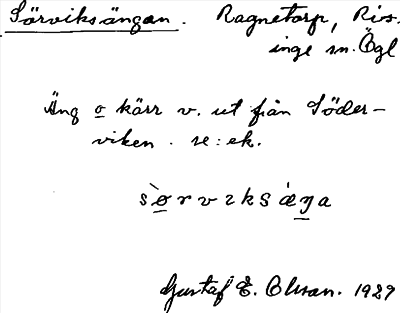 Sörviksängan. Ragnetorp, Ris-
inge sn. Ögl
Äng o kärr v. ut från Söder-
viken. se: ek.
sørvɪksæŋa
Gustaf E. Olsson. 1927